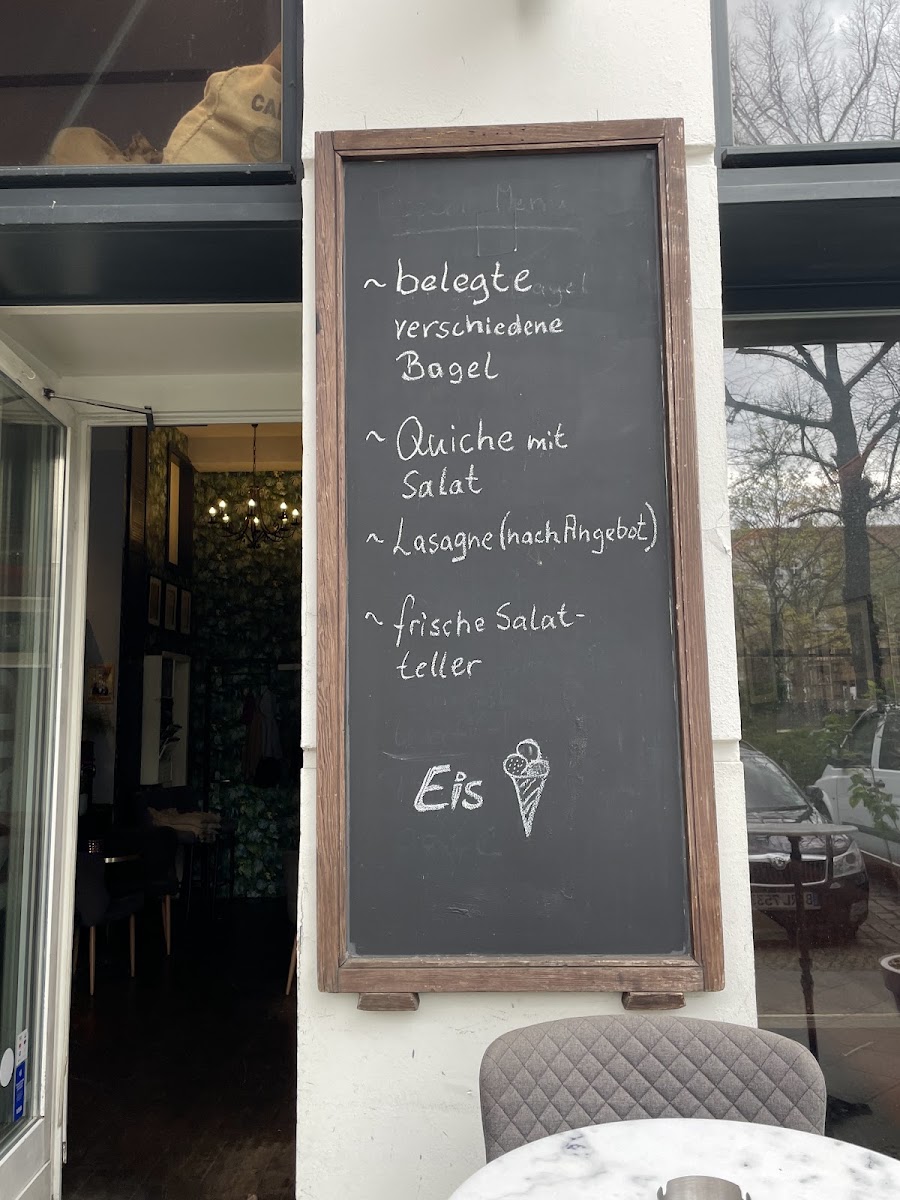 Menü
~ belegte
verschiedene
Bagel
~ Quiche mit
Salat
~ Lasagne (nach Angebot)
~ frische Salat-
teller
Eis